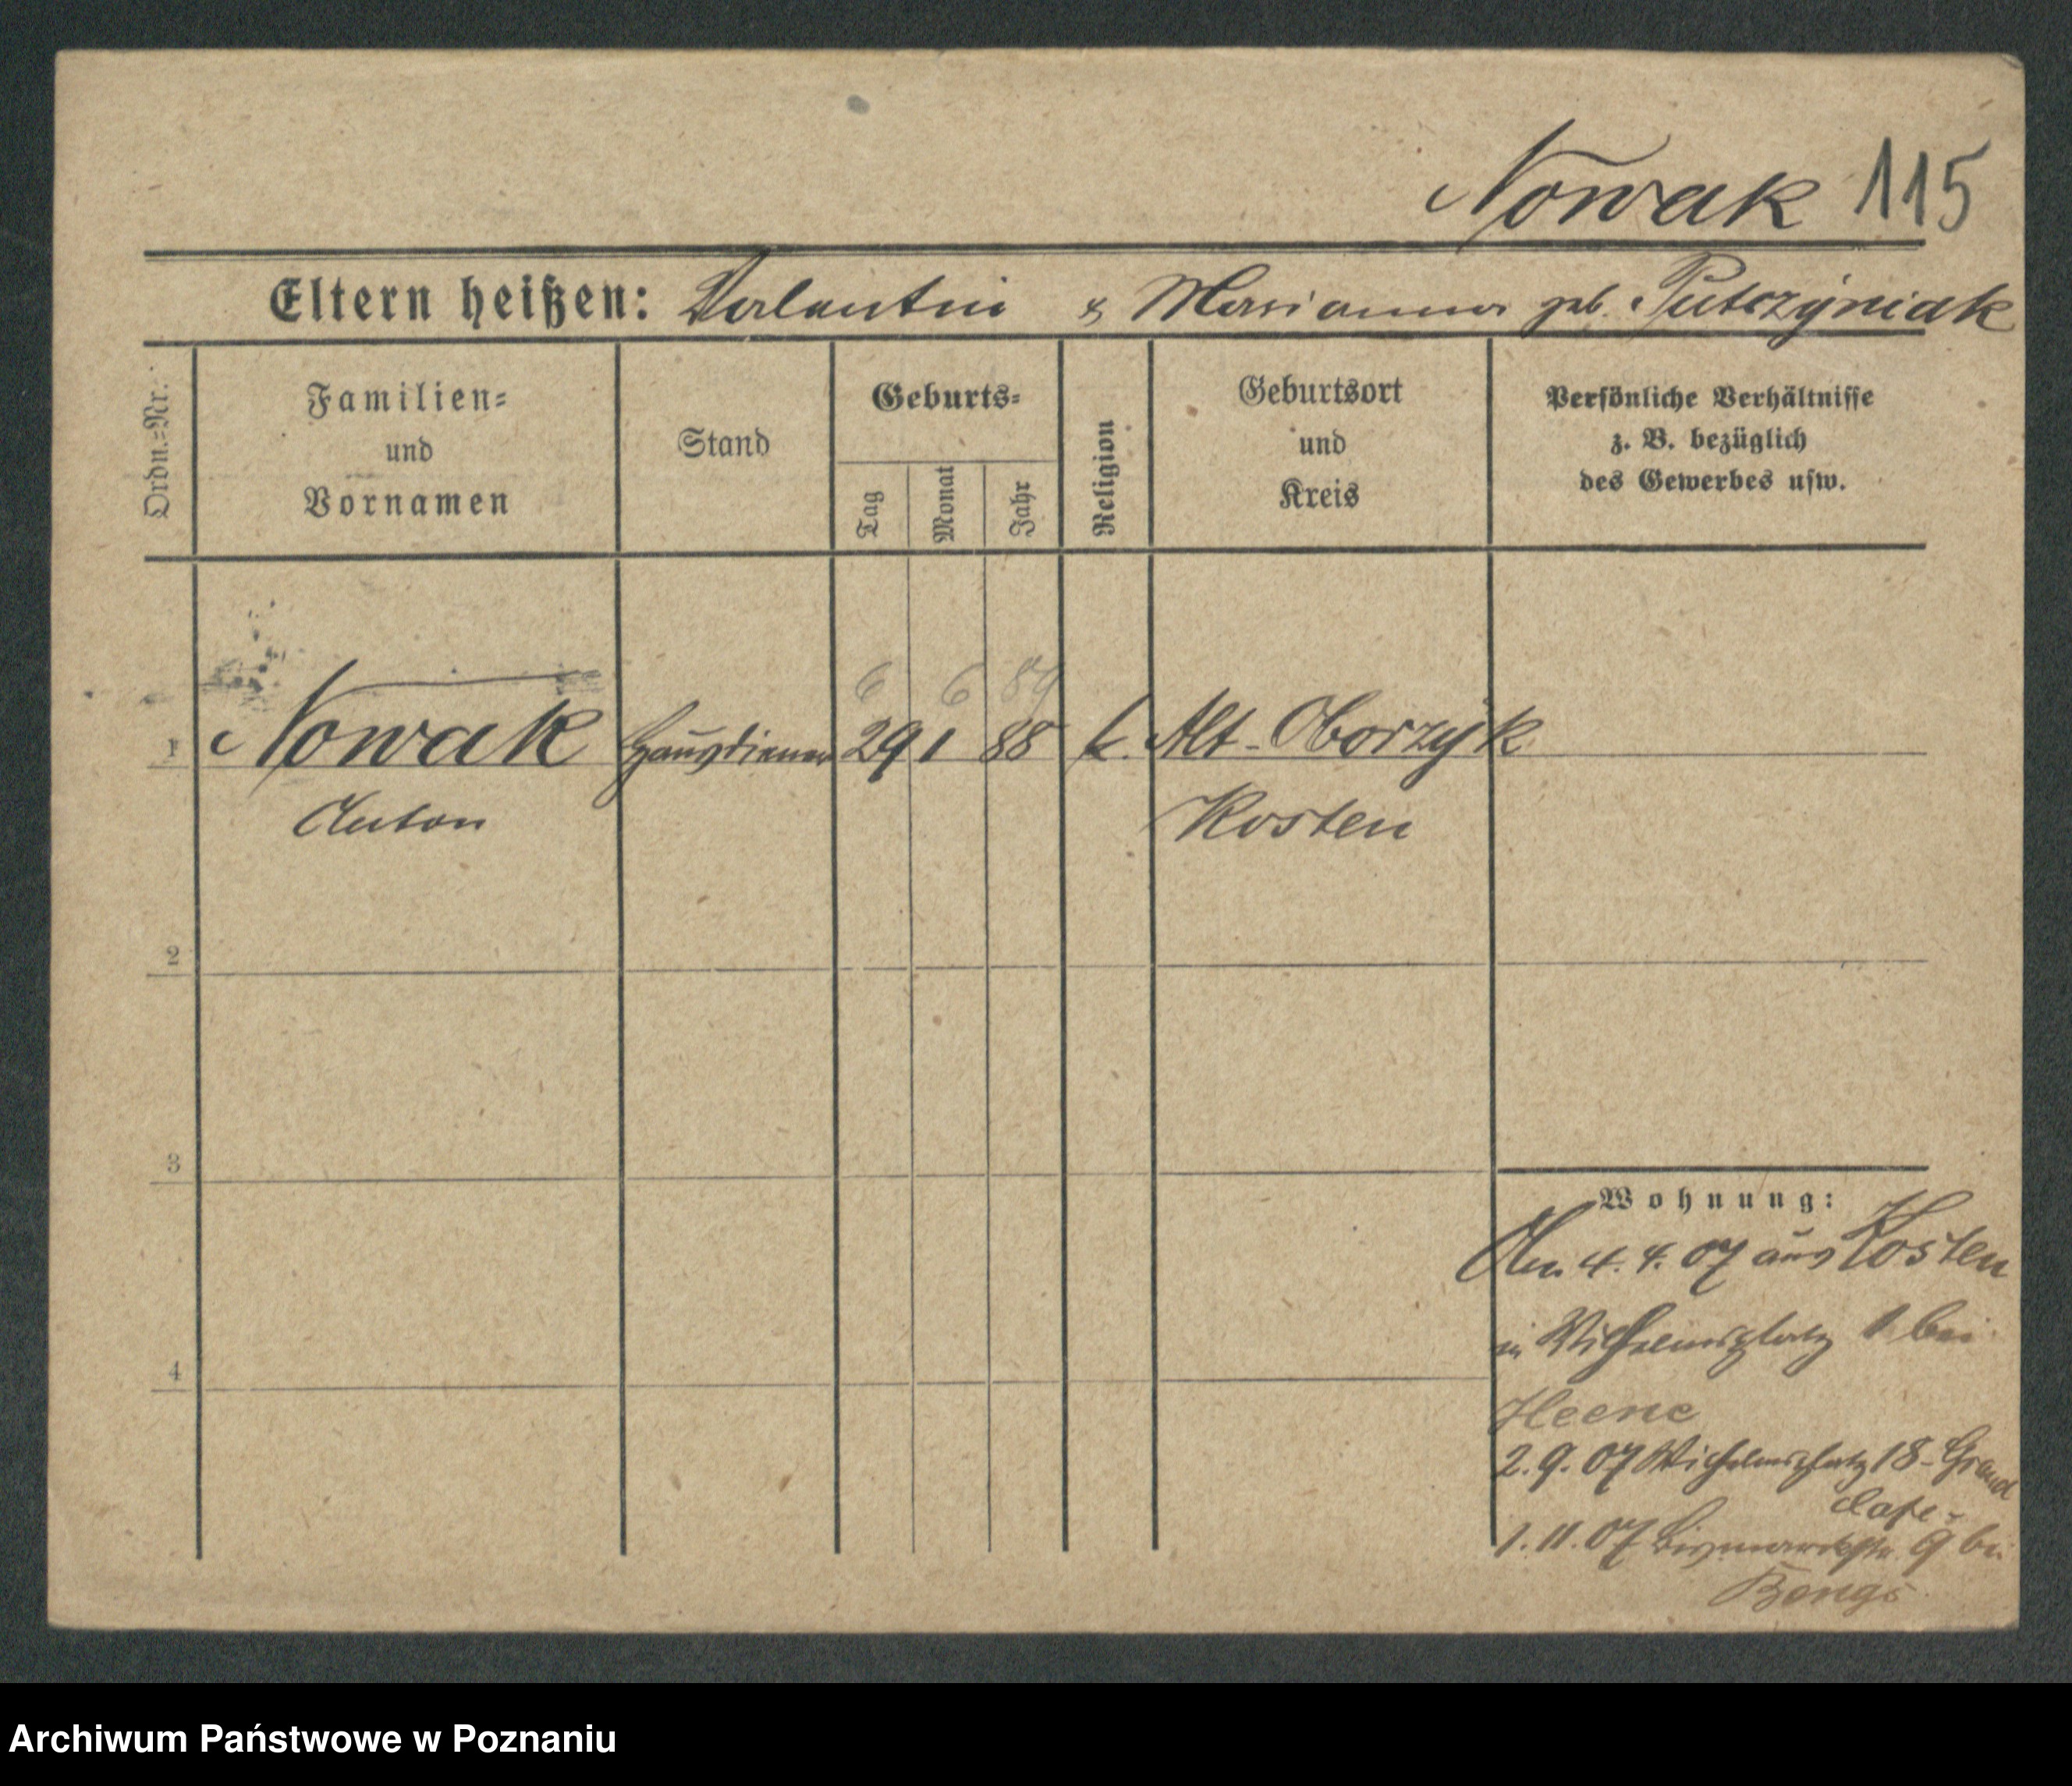 Nowak 115
Eltern heißen: Valentin & Marianna geb. Putczyniak
Ordn.-Nr.
Familien-
und
Vornamen
Stand
Geburts-
Tag
Monat
Jahr
Religion
Geburtsort
und
Kreis
Persönliche Verhältnisse
z. B. bezüglich
des Gewerbes usw.
6 6 89
1 Nowak Hausdiener 29 1 88 k. Alt-Oborzysk
Anton Kosten
2
3
4
Wohnung:
4. 4. 07 aus Kosten
in Wilhelmsplatz 1 bei
Heene
2. 9. 07 Wilhelmsplatz 18 - Grand
Cafe -
1. 11. 07 Bismarckstr. 9 bei
Bengs
Archiwum Państwowe w Poznaniu